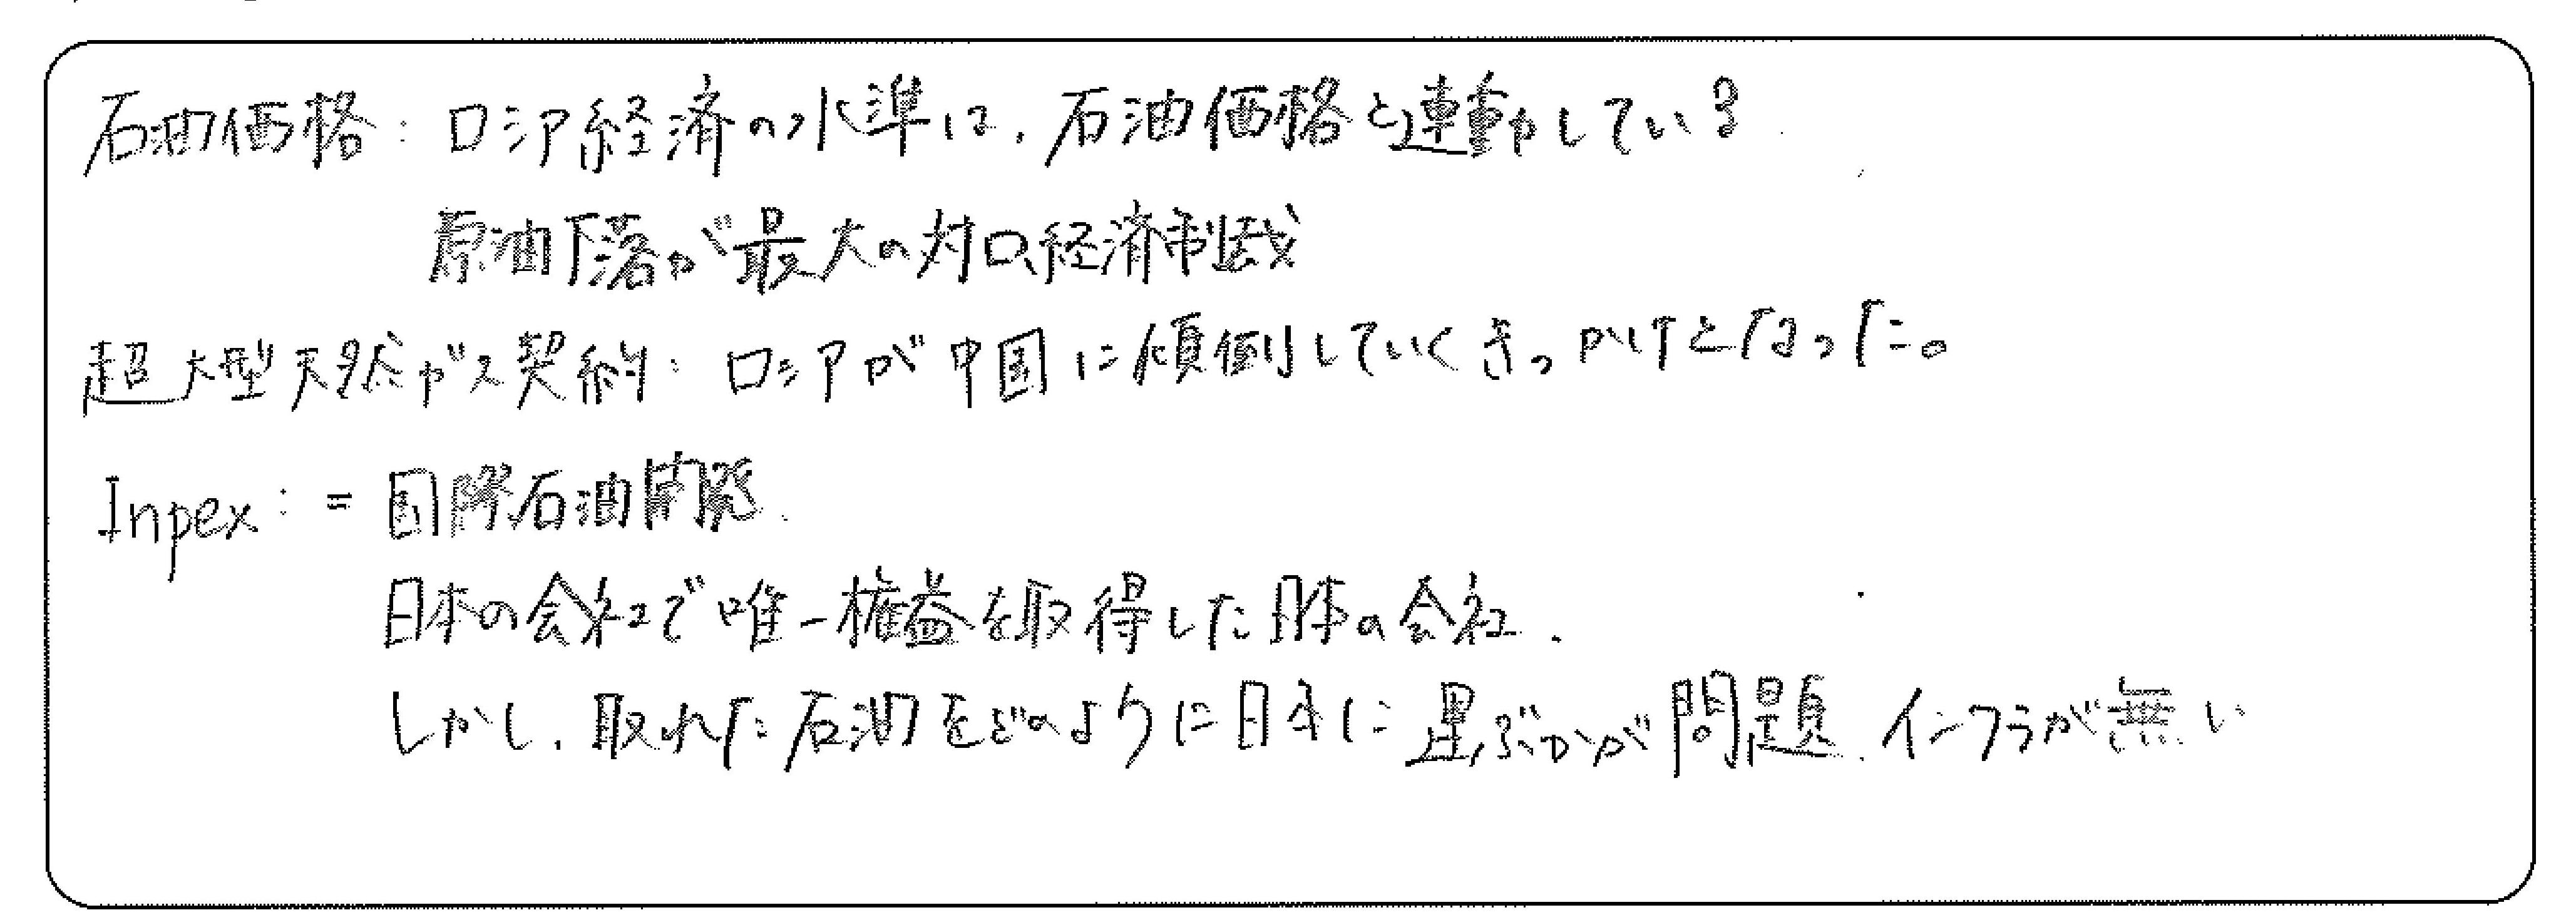 石油価格：ロシア経済の水準は，石油価格と連動している．
原油下落が最大の対ロ経済制裁
超大型天然ガス契約：ロシアが中国に傾倒していくきっかけとなった。
Inpex：＝国際石油開発．
日本の会社で唯一権益を取得した日本の会社．
しかし，取れた石油をどのように日本に運ぶかが問題．インフラが無い